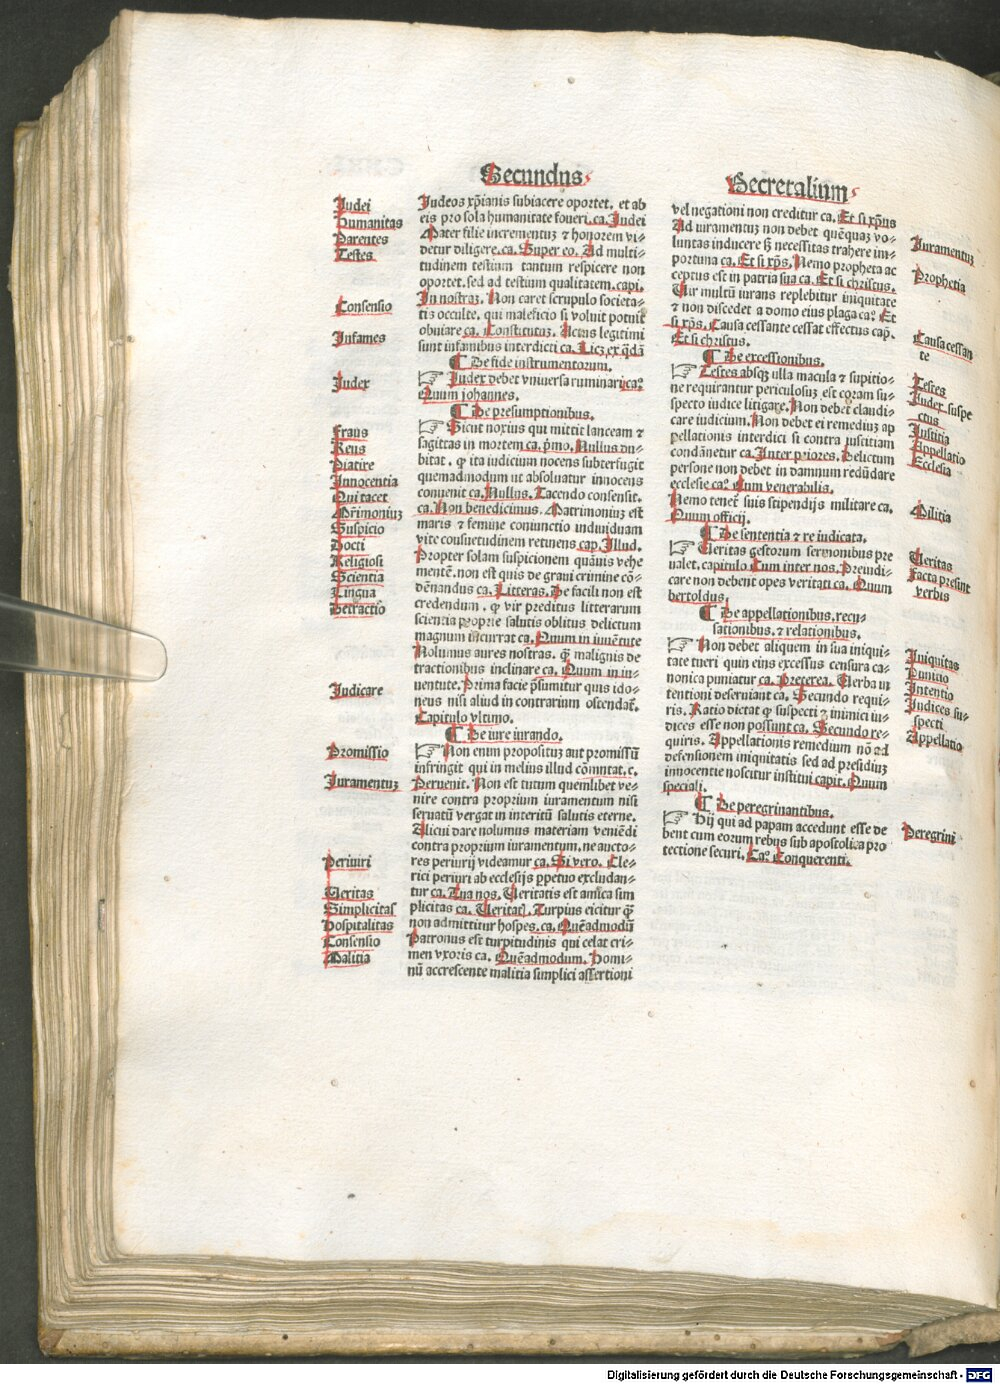 Secundus
Iudei
Humanitas
Parentes
Testes
Consensio
Infames
Iudex
Fraus
Reus
Piatire
Innocentia
Qui tacet
Mrimoniuȝ
Suspicio
Docti
Religiosi
Scientia
Lingua
Detractio
Iudicare
Promissio
Iuramentuȝ
Periuri
Ueritas
Simplicitas
Hospitalitas
Consensio
Malitia
Iudeos xp̄ianis subiacere oportet. et ab
eis pro sola humanitate foueri. ca. Iudei
Mater filie incrementuȝ ⁊ honorem vi⸗
detur diligere. ca. Super eo. Ad multi⸗
tudinem testium tantum respicere non
oportet. sed ad testium qualitatem. capi.
In nostra. Non caret scrupulo societa⸗
tis occulte. qui maleficio si voluit potuit
obuiare ca. Constitutuȝ. Actus legitimi
sunt infamibus interdicti ca. Licȝ ex q̄dā
¶ De fide instrumentorum.
☞ Iudex debet vniuersa ruminari ca?
Quum johannes.
¶ De presumptionibus.
☞ Sicut noxius qui mittit lanceam ⁊
sagittas in mortem ca. p̄mo. Nullus du⸗
bitat. ꝙ ita iudicium nocens subterfugit
quemadmodum ut absoluatur innocens
conuenit ca. Nullus. Tacendo consensit.
ca. Non benedicimus. Matrimonium est
maris ⁊ femine coniunctio indiuiduam
vite consuetudinem retinens cap. Illud.
Propter solam suspicionem quāuis vehe
mentē. non est quis de graui crimine cō⸗
dēnandus ca. Litteras. De facili non est
credendum. ꝙ vir preditus litterarum
scientia proprie salutis oblitus delictum
magnum incurrat ca. Quum in iuuētute
Nolumus aures nostras. ꝙ malignis de
tractionibus inclinare ca. Quum in iu⸗
uentute. Prima facie p̄sumitur quis ido⸗
neus nisi aliud in contrarium ostendat.
Capitulo vltimo.
¶ De iure iurando.
☞ Non enim propositum aut promissū
infringit qui in melius illud cōmutat. c.
Peruenit. Non est tutum quemlibet ve⸗
nire contra proprium iuramentum nisi
seruatū vergat in interitū salutis eterne.
Alicui dare nolumus materiam veniēdi
contra proprium iuramentum. ne aucto⸗
res periurij videamur ca. Si vero. Cle⸗
rici periuri ab ecclesijs ꝑpetuo excludan⸗
tur ca. Tua nos. Ueritatis est amica sim
plicitas ca. Ueritat. Turpius eicitur ꝙ̄
non admittitur hospes. ca. Quēadmodū
Patronus est turpitudinis qui celat cri⸗
men vxoris ca. Quēadmodum. Homi⸗
nū accrescente malitia simplici assertioni
Decretalium
vel negationi non creditur ca. Et si xp̄us
Ad iuramentuȝ non debet quēquaȝ vo⸗
luntas inducere sȝ necessitas trahere im⸗
portuna ca. Et si xp̄s. Nemo propheta ac
ceptus est in patria sua ca. Et si christus.
Uir multū iurans replebitur iniquitate
⁊ non discedet a domo eius plaga ca? Et
si xp̄s. Causa cessante cessat effectus cap̄.
Et si christus.
¶ De excessionibus.
☞ Testes absqȝ ulla macula ⁊ supitio⸗
ne requirantur periculosuȝ est coram su⸗
specto iudice litigare. Non debet claudi⸗
care iudicium. Non debet ei remediuȝ ap
pellationis interdici si contra iusticiam
condānetur ca. Inter priores. Delictum
persone non debet in damnum redūdare
ecclesie ca? Cum venerabilis.
Nemo tenet' suis stipendijs militare ca.
Quum officij.
¶ De sententia ⁊ re iudicata.
☞ Ueritas gestorum sermonibus pre
ualet. capitulo Cum inter nos. Preiudi⸗
care non debent opes veritati ca. Quum
bertoldus.
¶ De appellationibus. recu⸗
sationibus. ⁊ relationibus.
☞ Non debet aliquem in sua iniqui
tate tueri quin eius excessus censura ca⸗
nonica puniatur ca. Preterea. Uerba in
tentioni deseruiant ca. Secundo requi⸗
ris. Ratio dictat ꝙ suspecti ⁊ inimici iu⸗
dices esse non possunt ca. Secundo re⸗
quiris. Appellationis remedium nō ad
defensionem iniquitatis sed ad presidiuȝ
innocentie noscitur institui capit. Quum
speciali.
¶ De peregrinantibus.
☞ Hij qui ad papam accedunt esse de
bent cum eorum rebus sub apostolica pro
tectione securi. Ca? Conquerenti.
Iuramentuȝ
Prophetia
Causa cessan
te
Testes
Iudex suspe
ctus
Iustitia
Appellatio
Ecclesia
Militia
Ueritas
Facta presint
verbis
Iniquitas
Punitio
Intentio
Iudices su⸗
specti
Appellatio
Peregrini
Digitalisierung gefördert durch die Deutsche Forschungsgemeinschaft - DFG